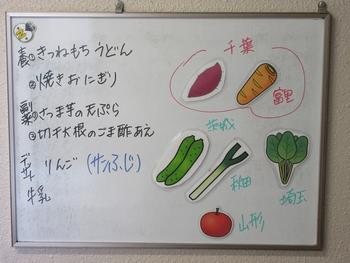 主①きつねもちうどん
②焼きおにぎり
副菜①さつま芋の天ぷら
②切干大根のごま酢あえ
デザート りんご (サンふじ)
牛乳
千葉
富里
茨城
秋田
埼玉
山形